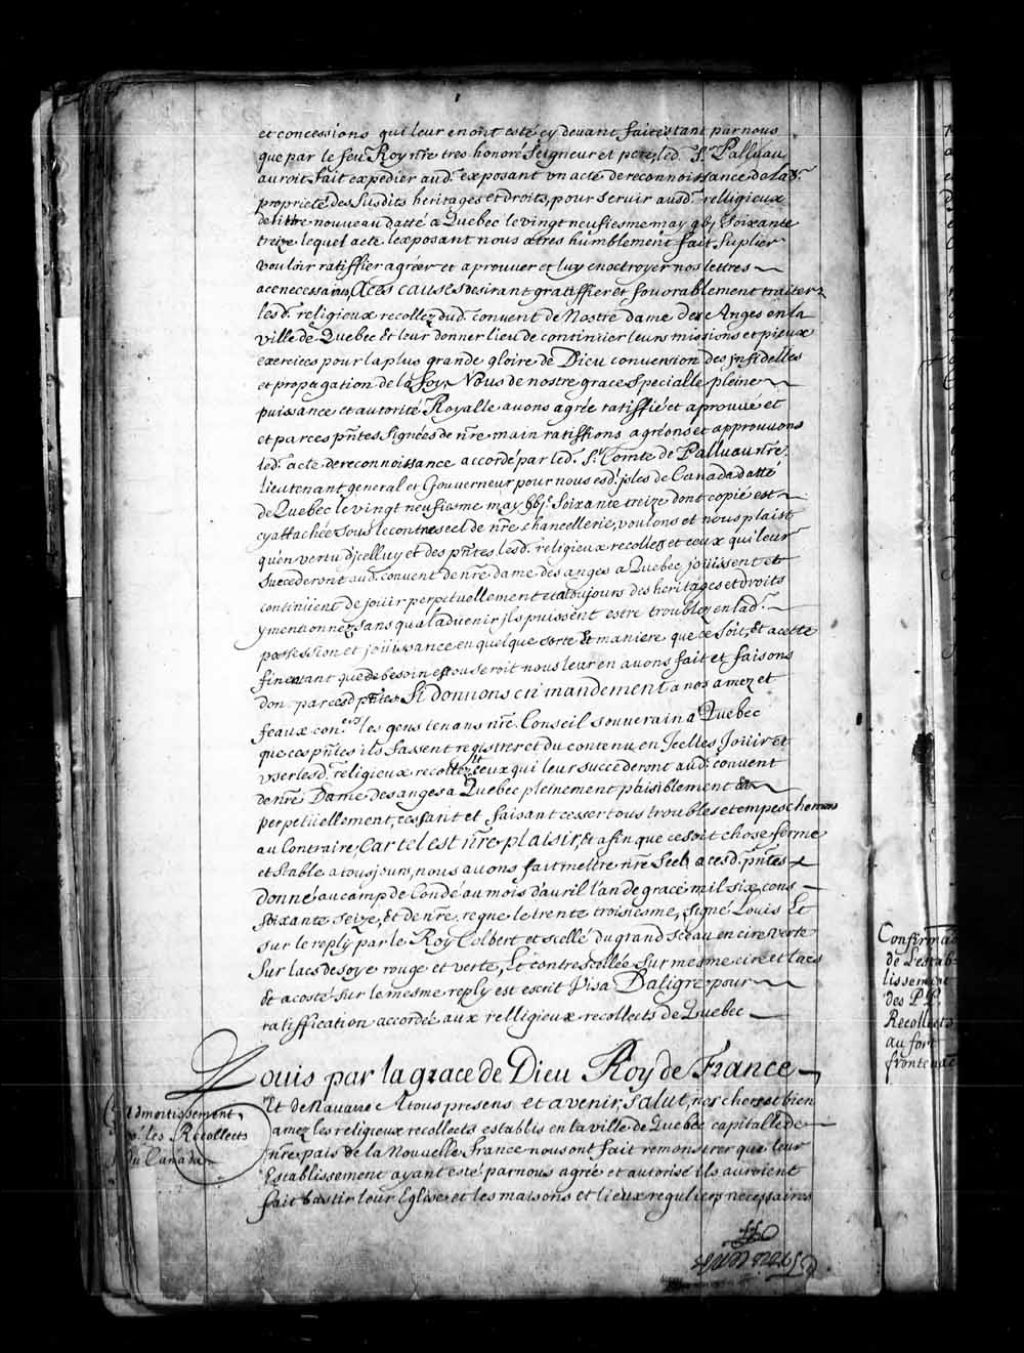 et concessions qui leur en ont esté cy devant faites tant par nous
que par le feu Roy nre tres honoré Seigneur et pere, led. Sr. Palluau
auroit fait expedier aud. exposant un acte de reconnoissance de lad.
proprieté des susdits heritages et droits, pour servir ausd. relligieux
de tittre nouveau datté a Quebec le vingt neufiesme may gbj soixante
treize lequel acte lexposant nous a tres humblement fait suplier
vouloir ratiffier agréer et aprouver et luy en octroyer nos lettres
ace necessaires, A ces causes desirant gratiffier et favorablement traiter
lesd. religieux recollez dud. convent de Nostre dame des Anges en la
ville de Quebec et leur donner lieu de continüer leurs missions et pieux
exercices pour la plus grande gloire de Dieu conversion des jnfidelles
et propagation de la foy, Nous de nostre grace specialle pleine
puissance et autorité Royalle avons agréé ratiffié et aprouvé et
et par ces pntes signées de nre main ratiffions agréons et approuvons
led. acte de reconnoissance accordé par led. Sr. Comte de Palluau nre.
lieutenant general et Gouverneur pour nous esd. jsles de Canada datté
de Quebec le vingt neufiesme may gbj. soixante treize dont copie est
cy attachée sous le contreseel de nre chancellerie, voulons et nous plaist
qu'en vertu d'jcelluy et des pntes lesd. religieux recollets et ceux qui leur
succederont aud. convent de nre dame des anges a Quebec joüissent et
continüent de joüir perpetuellement et a toujours des heritages et droits
y mentionnez sans qu'a l'advenir jls puissent estre troublez en lad.
possession et joüissance en quelque sorte et maniere que ce soit, Et a cette
fin en tant que de besoin est ou seroit nous leur en avons fait et faisons
don par cesd pntes Si donnons en mandement a nos amez et
feaux coners les gens tenans nre. Conseil souverain a Quebec
que ces pntes ils fassent registrer et du contenu en Jcelles Joüir et
user lesd. religieux recollets et ceux qui leur succederont aud. convent
de nre Dame des anges a Quebec pleinement paisiblement et
perpetüellement, cessant et faisant cesser tous troubles et empeschemens
au Contraire, Car tel est nre plaisir, Et afin que ce soit chose ferme
et stable a tousjours, nous avons fait mettre nre Seel a cesd. pntes
donné au camp de Condé au mois d'avril l'an de grace mil six cens
soixante seize, Et de nre. regne le trente troisiesme, signé Louis Et
sur le reply par le Roy Colbert et scellé du grand sceau en cire verte
sur lacs de soye rouge et verte, Et contrescellée sur mesme cire et lacs
Et a costé sur le mesme reply est escrit Visa Daligre pour
ratiffication accordée aux relligieux recollects de Quebec
Louis par la grace de Dieu Roy de France
Et de Navarre A tous presens et avenir, Salut, nos chers et bien
amez les religieux recollects establis en la ville de Quebec capitalle de
nre païs de la Nouvelle france nous ont fait remonstrer que leur
Establissement ayant esté par nous agréé et autorisé ils auroient
fait bastir leur Eglise et les maisons et lieux reguliers necessaires
Admortissement
les Recollects
du Canada
Confirmaon
de L'estab-
lissement
des PP.
Recollects
au fort
frontenac